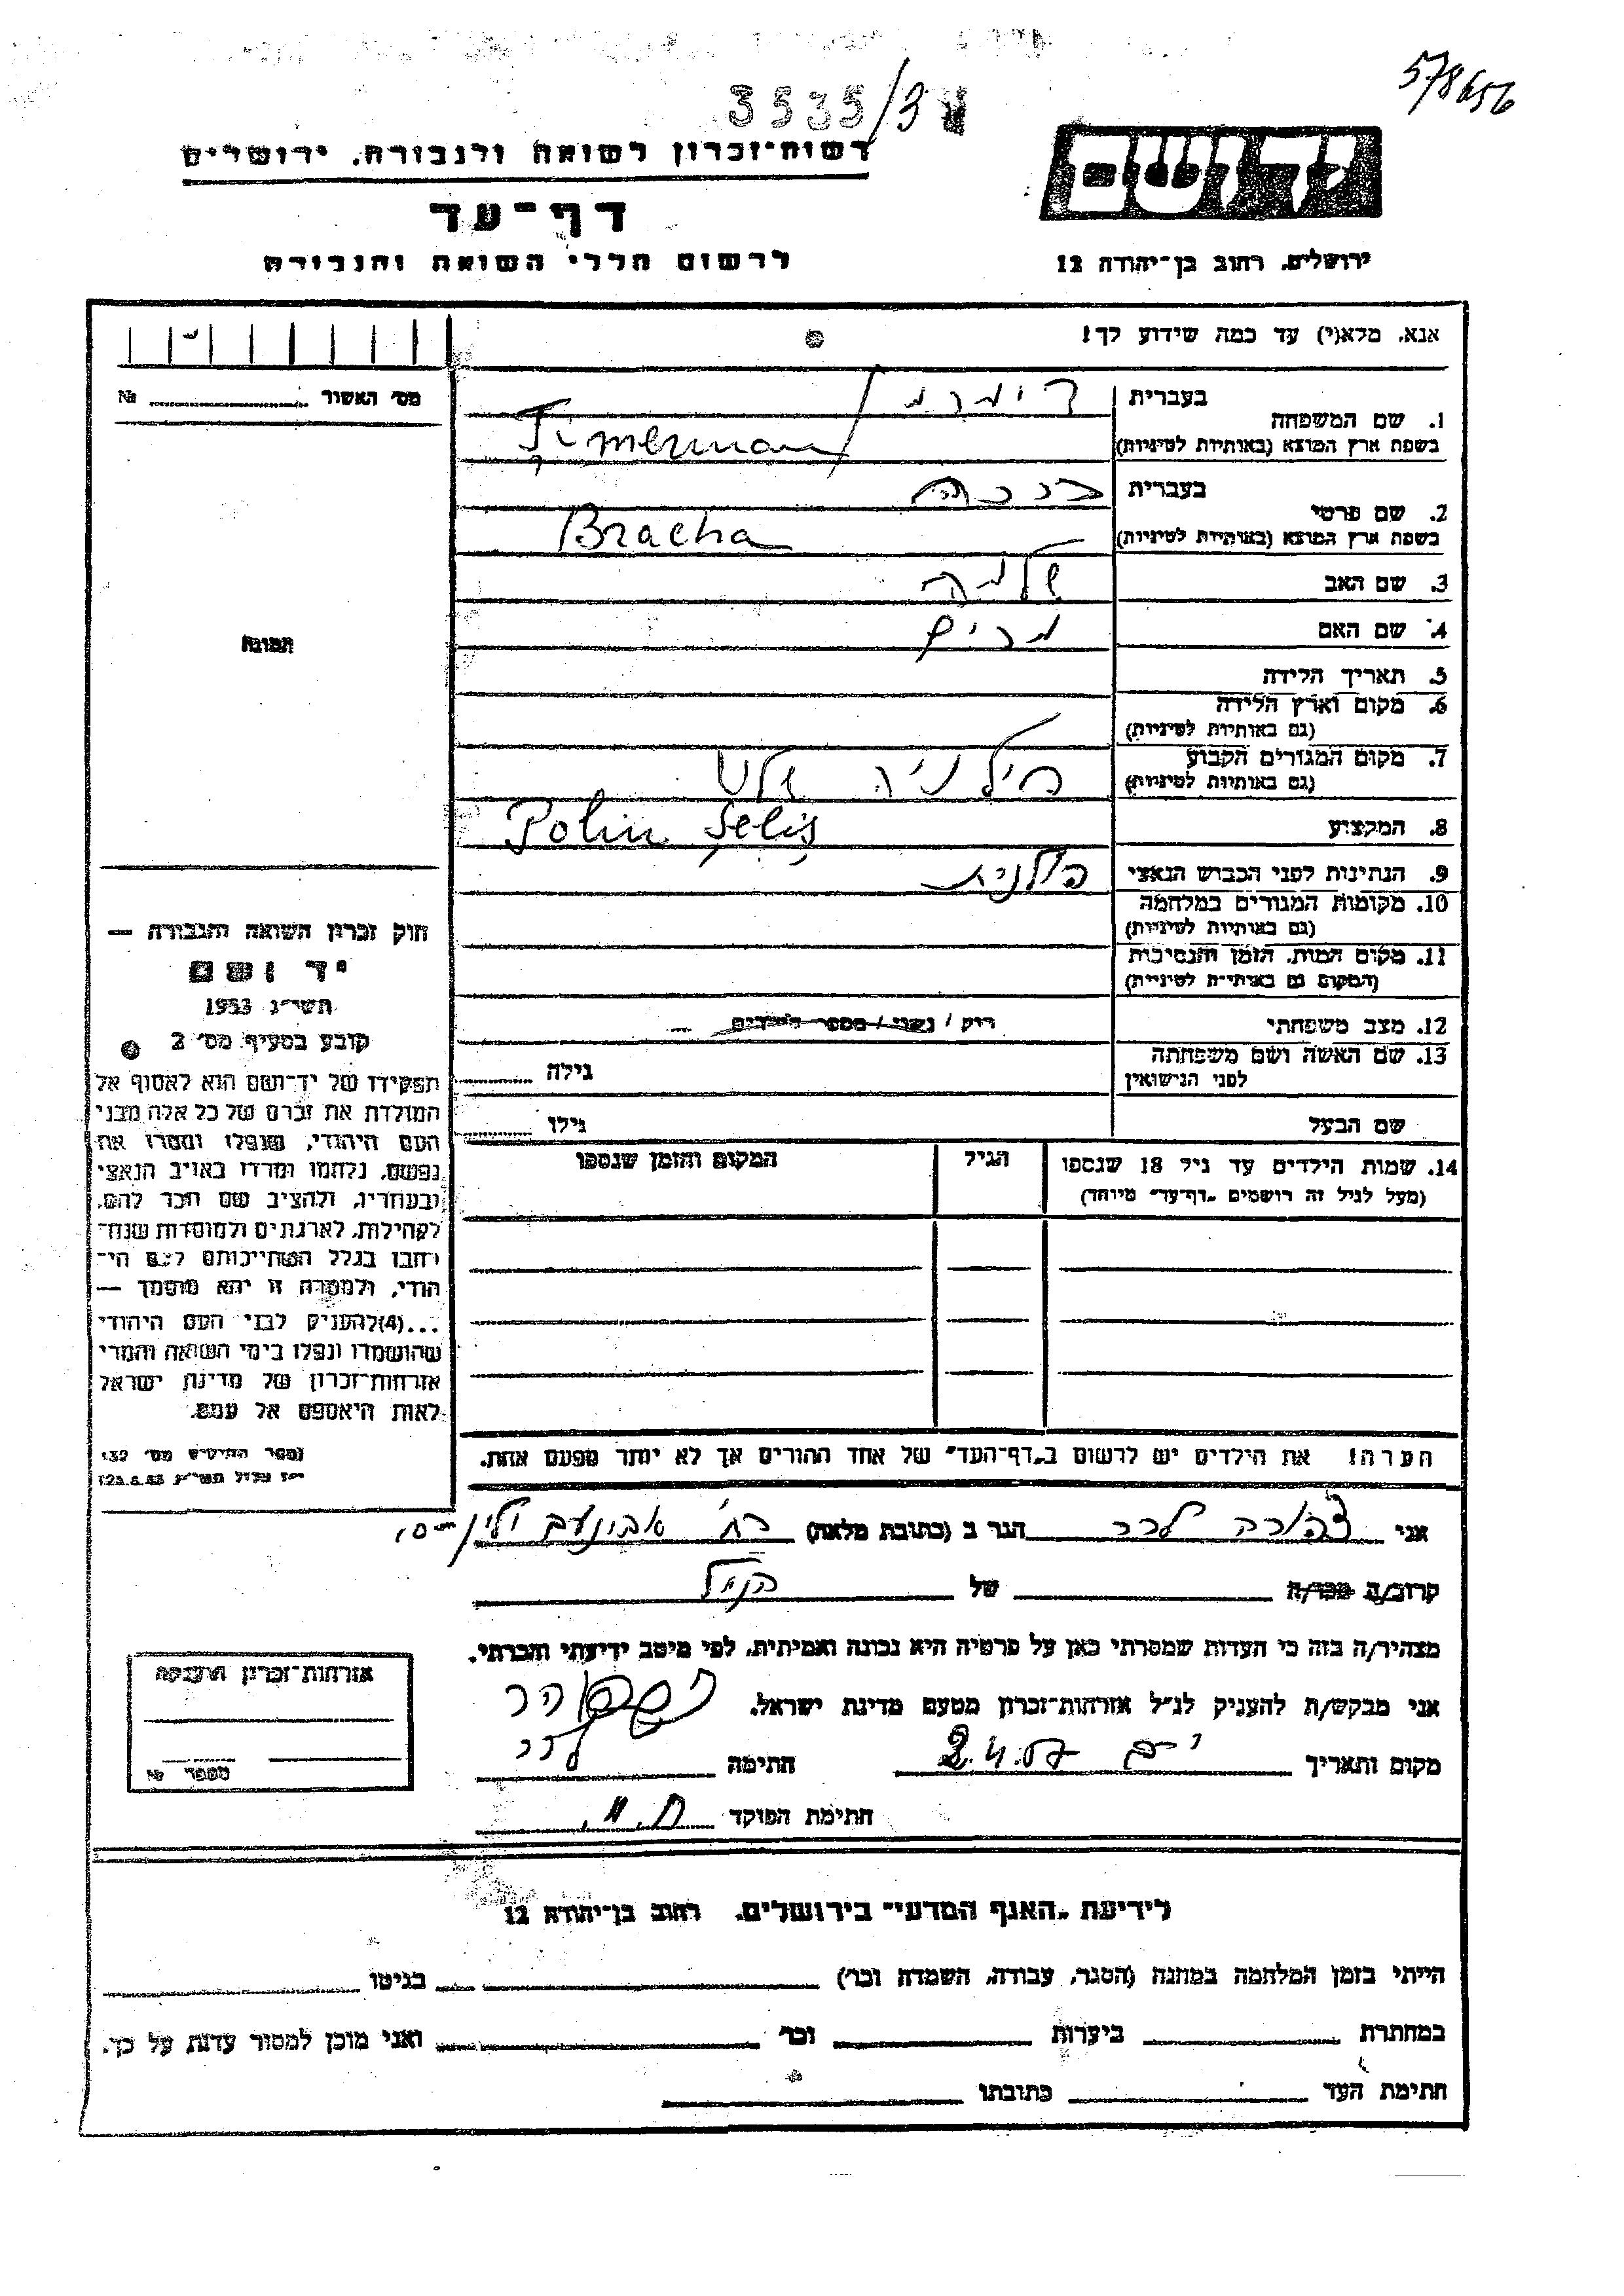 578656
3535/3
רשות־זכרון לשואה ולגבורה, ירושלים
דף־עד
לרשום חללי השואה והגבורה
יד ושם
ירושלים, רחוב בן־יהודה 12
אנא, מלא(י) עד כמה שידוע לך!
מס׳ האשור № 
1. שם המשפחה
בעברית
בשפת ארץ המוצא (באותיות לטיניות) Zimerman
2. שם פרטי
בעברית ברכה
בשפת ארץ המוצא (באותיות לטיניות) Bracha
3. שם האב שלמה
4. שם האם מרים
5. תאריך הלידה
6. מקום וארץ הלידה
(גם באותיות לטיניות)
7. מקום המגורים הקבוע
(גם באותיות לטיניות)
8. המקצוע Polin Selis
9. הנתינות לפני הכבוש הנאצי פולנית
10. מקומות המגורים במלחמה
(גם באותיות לטיניות)
11. מקום המות, הזמן והנסיבות
(המקום גם באותיות לטיניות)
12. מצב משפחתי רוק / נשוי / מספר הילדים
13. שם האשה ושם משפחתה
לפני הנישואין
גילה
שם הבעל גילו
14. שמות הילדים עד גיל 18 שנספו
(מעל לגיל זה רושמים „דף־עד״ מיוחד)
הגיל
המקום והזמן שנספו
תמונה
חוק זכרון השואה והגבורה —
יד ושם
תשי״ג 1953
קובע בסעיף מס׳ 2
תפקידו של יד־ושם הוא לאסוף אל
המולדת את זכרם של כל אלה מבני
העם היהודי, שנפלו ומסרו את
נפשם, נלחמו ומרדו באויב הנאצי
ובעוזריו, ולהציב שם וזכר להם,
לקהילות, לארגונים ולמוסדות שנח־
רבו בגלל השתייכותם לעם הי־
הודי, ולמטרה זו יהא מוסמך —
...(4)להעניק לבני העם היהודי
שהושמדו ונפלו בימי השואה והמרי
אזרחות־זכרון של מדינת ישראל
לאות היאספם אל עמם.
הערה! את הילדים יש לרשום ב„דף־העד״ של אחד ההורים אך לא יותר מפעם אחת.
אני צפורה לרר הגר ב (כתובת מלאה) רח׳ אבינעם ילין
קרוב/ה מכר/ה של הנ״ל
מצהיר/ה בזה כי העדות שמסרתי כאן על פרטיה היא נכונה ואמיתית, לפי מיטב ידיעתי והכרתי.
אני מבקש/ת להעניק לנ״ל אזרחות־זכרון מטעם מדינת ישראל.
מקום ותאריך חתימה לרר
חתימת הפוקד
אזרחות־זכרון הוענקה
מספר №
לידיעת „האגף המדעי״ בירושלים, רחוב בן־יהודה 12
הייתי בזמן המלחמה במחנה (הסגר, עבודה, השמדה וכו׳) בגיטו
במחתרת ביערות וכו׳ ואני מוכן למסור עדות על כך.
חתימת העד כתובתו